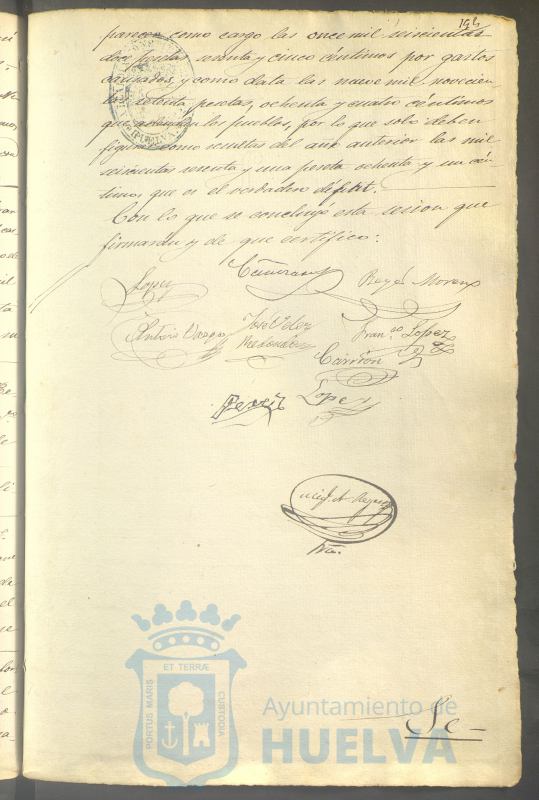 194
parezca como cargo las once mil seiscientas
dos pesetas sesenta y cinco céntimos por gastos
causados, y como data las nueve mil novecien-
tas ochenta pesetas, ochenta y cuatro céntimos
que adeudan los pueblos, por lo que solo deben
figurar como resultas del año anterior las mil
seiscientas sesenta y una peseta ochenta y un cén-
timos que es el verdadero déficit.
Con lo que se concluyó esta sesion que
firmaron y de que certifico:
Lopez
Rey Moreno
Antonio Vargas
José Velez
Franco. Lopez
Carrión
Lopez
Srio.
Se-
ET TERRÆ
PORTUS MARIS
CUSTODIA
Ayuntamiento de
HUELVA